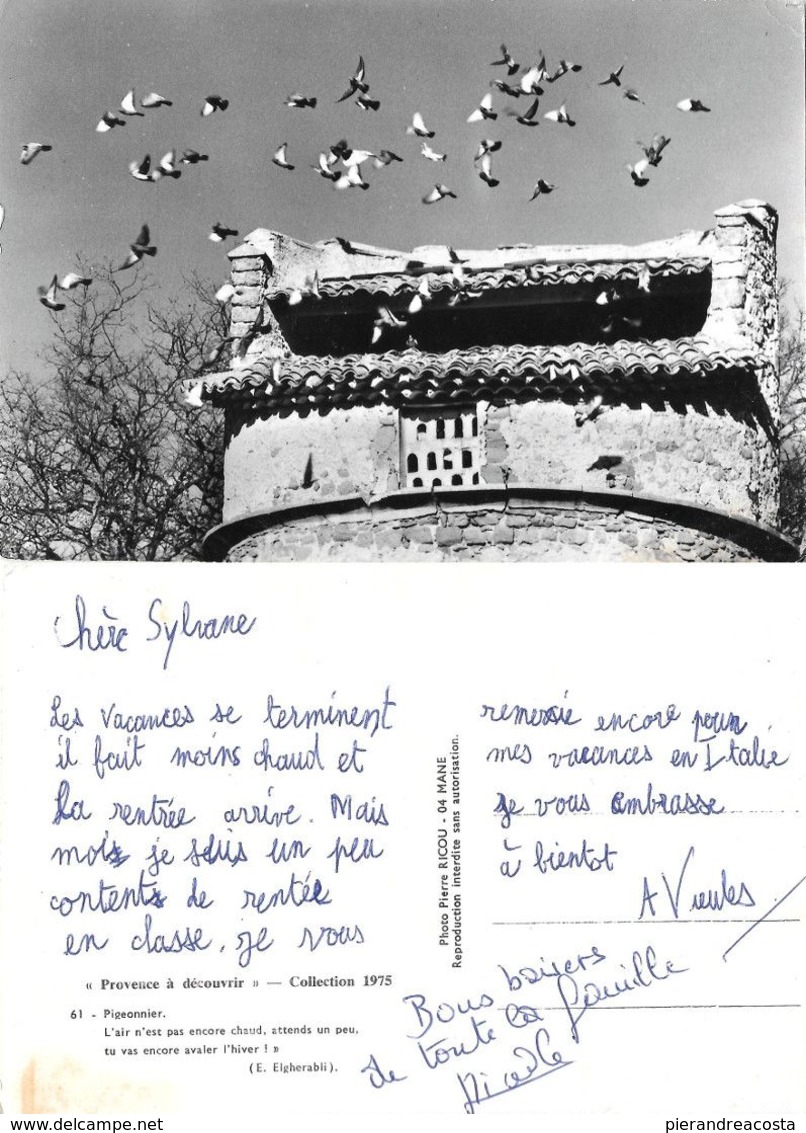 chère Sylvane
Les vacances se terminent
il fait moins chaud et
La rentrée arrive. Mais
mois je suis un peu
contents de rentée
en classe. je vous
remersie encore pour
mes vacances en Italie
je vous embrasse
à bientôt
Photo Pierre RICOU - 04 MANE
Reproduction interdite sans autorisation.
« Provence à découvrir » — Collection 1975
61 - Pigeonnier.
L'air n'est pas encore chaud, attends un peu,
tu vas encore avaler l'hiver ! »
(E. Elgherabli).
Bons baisers
de toute la famille
pierandreacosta